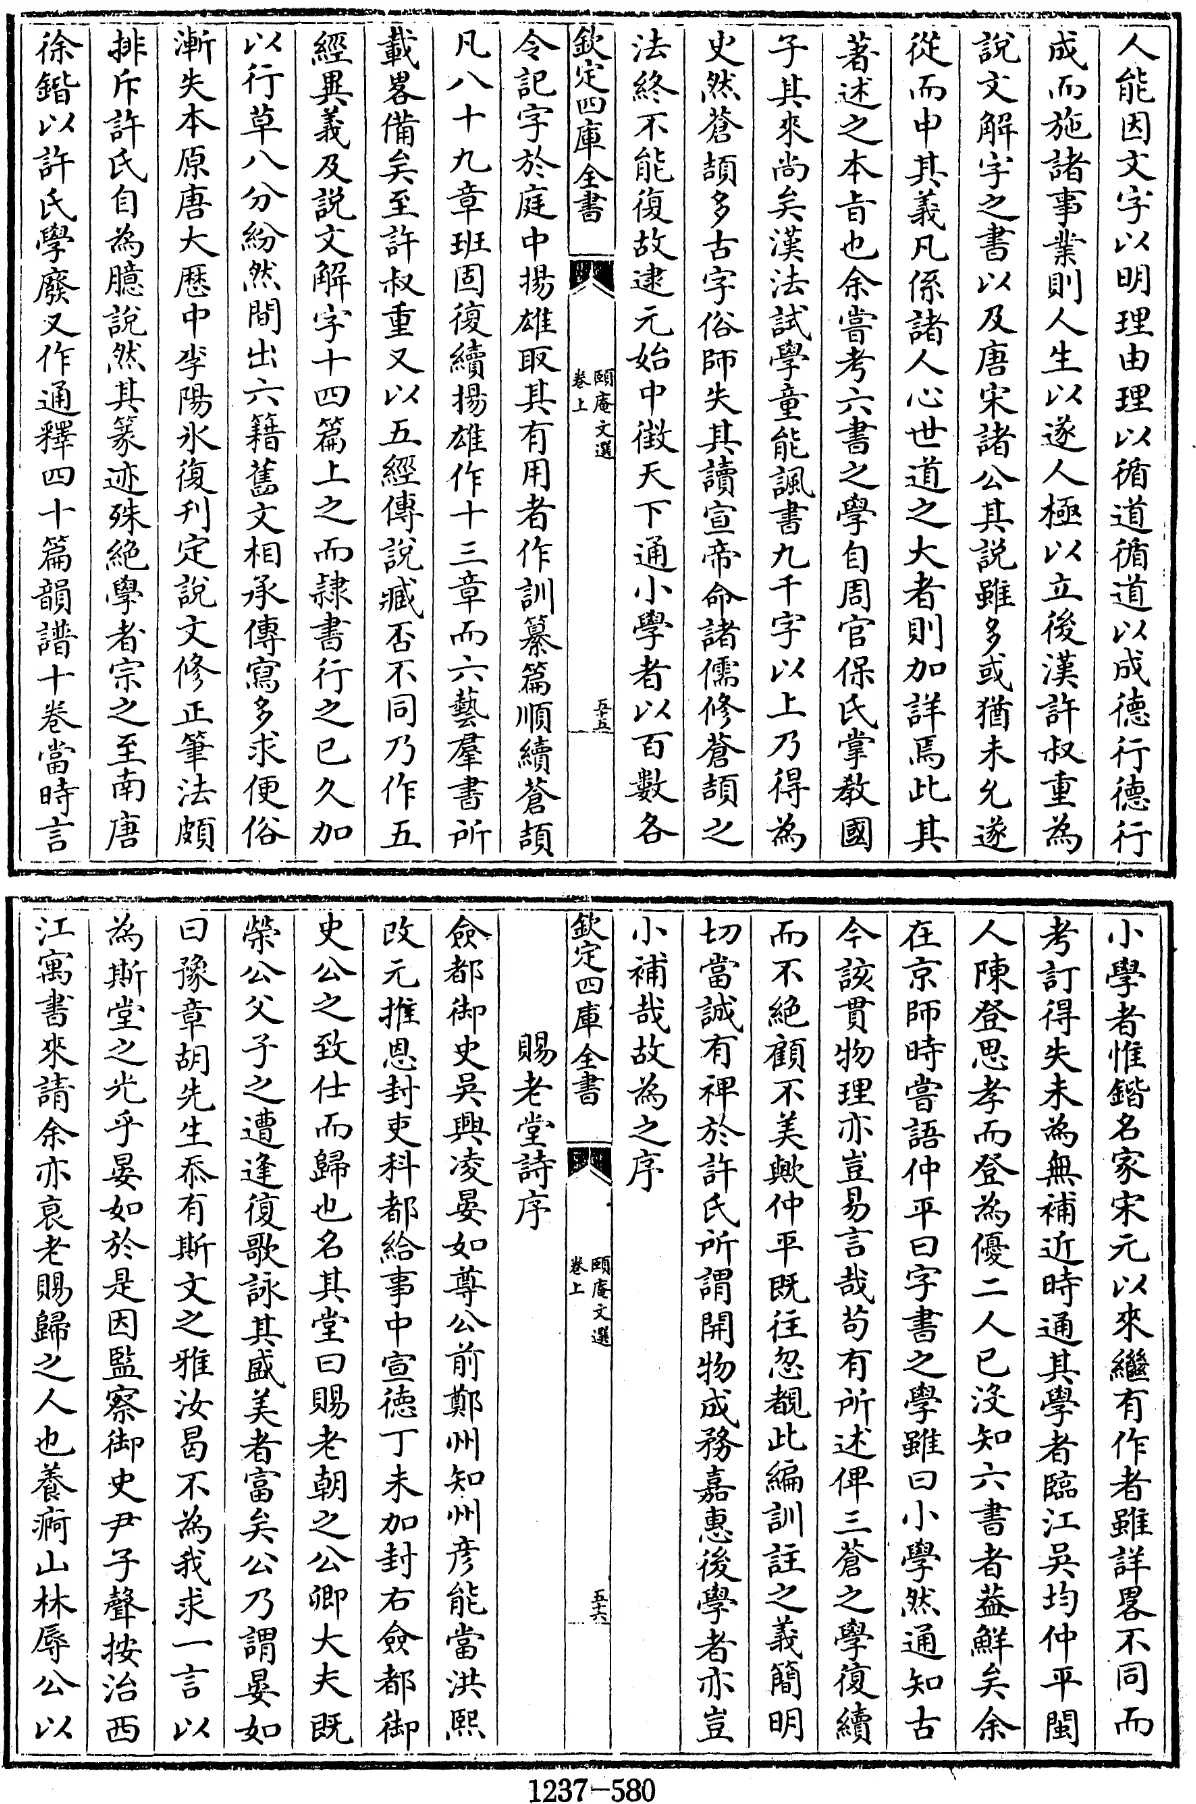 人能因文字以明理由理以循道循道以成德行德行
成而施諸事業則人生以遂人極以立後漢許叔重為
說文解字之書以及唐宋諸公其説雖多或猶未允遂
從而申其義凡係諸人心世道之大者則加詳焉此其
著述之本㫖也余嘗考六書之學自周官保氏掌教國
子其來尚矣漢法試學童能諷書九千字以上乃得為
史然蒼頡多古字俗師失其讀宣帝命諸儒修蒼頡之
法終不能復故逮元始中徴天下通小學者以百數各
欽定四庫全書
頤庵文選
卷上
五十五
令記字於庭中揚雄取其有用者作訓纂篇順續蒼頡
凡八十九章班固復續揚雄作十三章而六藝羣書所
載畧備矣至許叔重又以五經傳説臧否不同乃作五
經異義及説文解字十四篇上之而隷書行之已久加
以行草八分紛然間出六籍舊文相承傳寫多求便俗
漸失本原唐大厯中李陽氷復刋定説文修正筆法頗
排斥許氏自為臆説然其篆迹殊絶學者宗之至南唐
徐鍇以許氏學廢又作通釋四十篇韻譜十卷當時言
小學者惟鍇名家宋元以來繼有作者雖詳畧不同而
考訂得失未為無補近時通其學者臨江吳均仲平閩
人陳登思孝而登為優二人已没知六書者葢鮮矣余
在京師時嘗語仲平曰字書之學雖曰小學然通知古
今該貫物理亦豈易言哉茍有所述俾三蒼之學復續
而不絶顧不美歟仲平既往忽覩此編訓註之義簡明
切當誠有裨於許氏所謂開物成務嘉惠後學者亦豈
小補哉故為之序
欽定四庫全書
頤庵文選
卷上
五十六
賜老堂詩序
僉都御史吳興凌晏如尊公前鄭州知州彦能當洪熙
改元推恩封吏科都給事中宣徳丁未加封右僉都御
史公之致仕而歸也名其堂曰賜老朝之公卿大夫既
榮公父子之遭逢復歌詠其盛美者富矣公乃謂晏如
曰豫章胡先生忝有斯文之雅汝曷不為我求一言以
為斯堂之光乎晏如於是因監察御史尹子聲按治西
江寓書來請余亦哀老賜歸之人也養痾山林辱公以
1237-580